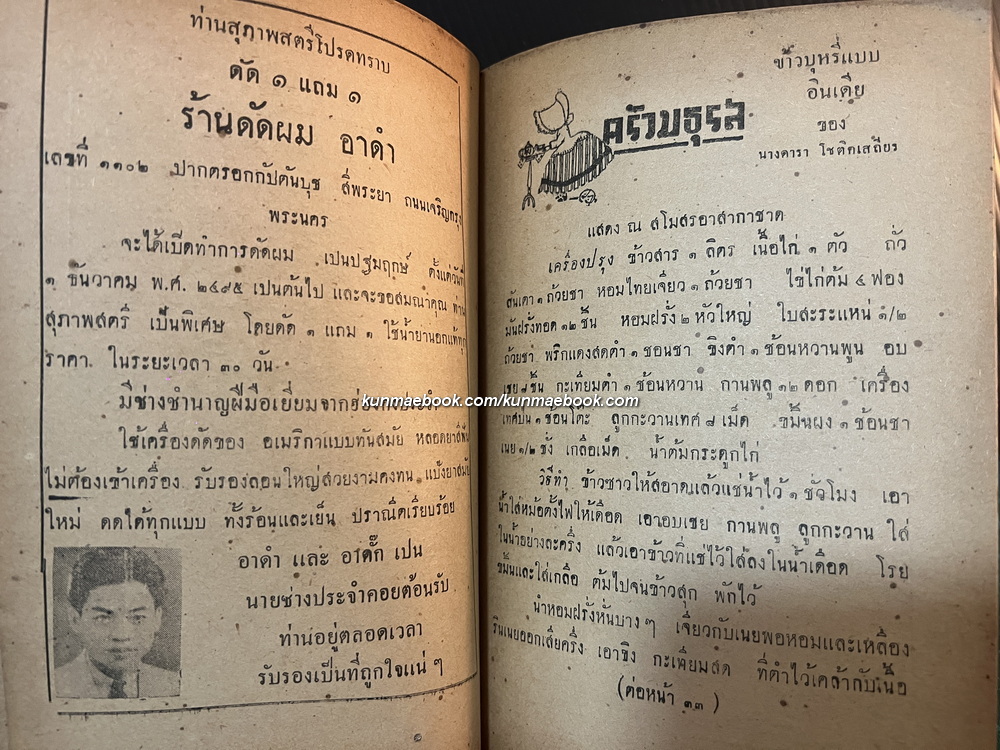 ท่านสุภาพสตรีโปรดทราบ
ดัด ๑ แถม ๑
ร้านดัดผม อาดำ
เลขที่ ๑๑๐๒ ปากตรอกกัปตันบุช สี่พระยา ถนนเจริญกรุง
พระนคร
จะได้เปิดทำการดัดผม เปนปฐมฤกษ์ ตั้งแต่วันที่
๑ ธันวาคม พ.ศ. ๒๔๙๕ เปนต้นไป และจะขอสมนาคุณ ท่าน
สุภาพสตรี เป็นพิเศษ โดยดัด ๑ แถม ๑ ใช้น้ำยานอกแท้ทุก
ราคา. ในระยะเวลา ๓๐ วัน
มีช่างชำนาญฝีมือเยี่ยมจาก
kunmaebook.com/kunmaebook.com
ใช้เครื่องดัดของ อเมริกาแบบทันสมัย หลอดยาสีฟัน
ไม่ต้องเข้าเครื่อง รับรองลอนใหญ่สวยงามคงทน แป้งยาสมัย
ใหม่ ดดได้ทุกแบบ ทั้งร้อนและเย็น ปราณีตเรียบร้อย
อาดำ และ อาตั๊ก เปน
นายช่างประจำคอยต้อนรับ
ท่านอยู่ตลอดเวลา
รับรองเป็นที่ถูกใจแน่ ๆ
ครัวมธุรส
ข้าวบุหรี่แบบ
อินเดีย
ของ
นางดารา โชติกเสถียร
แสดง ณ สโมสรอาสากาชาด
เครื่องปรุง ข้าวสาร ๑ ลิตร เนื้อไก่ ๑ ตัว ถั่ว
ลันเตา ๑ ถ้วยชา หอมไทยเจียว ๑ ถ้วยชา ไข่ไก่ต้ม ๔ ฟอง
มันฝรั่งทอด ๑๒ ชิ้น หอมฝรั่ง ๒ หัวใหญ่ ใบสะระแหน่ ๑/๒
ถ้วยชา พริกแดงสดตำ ๑ ชอนชา ขิงตำ ๑ ช้อนหวานพูน อบ
เชย ๘ ชิ้น กะเทียมตำ ๑ ช้อนหวาน กานพลู ๑๒ ดอก เครื่อง
เทศป่น ๑ ช้อนโต๊ะ ลูกกะวานเทศ ๘ เม็ด ขมิ้นผง ๑ ช้อนชา
เนย ๑/๒ ชั่ง เกลือเม็ด น้ำต้มกระดูกไก่
วิธีทำ ข้าวซาวให้สอาดแล้วแช่น้ำไว้ ๑ ชั่วโมง เอา
น้ำใส่หม้อตั้งไฟให้เดือด เอาอบเชย กานพลู ลูกกะวาน ใส่
ในน้ำอย่างละครึ่ง แล้วเอาข้าวที่แช่ไว้ใส่ลงในน้ำเดือด โรย
ขมิ้นและใส่เกลือ ต้มไปจนข้าวสุก พักไว้
นำหอมฝรั่งหั่นบาง ๆ เจียวกับเนยพอหอมและเหลือง
รินเนยออกเสียครึ่ง เอาขิง กะเทียมสด ที่ตำไว้เคล้ากับเนื้อ
(ต่อหน้า ๓๓)